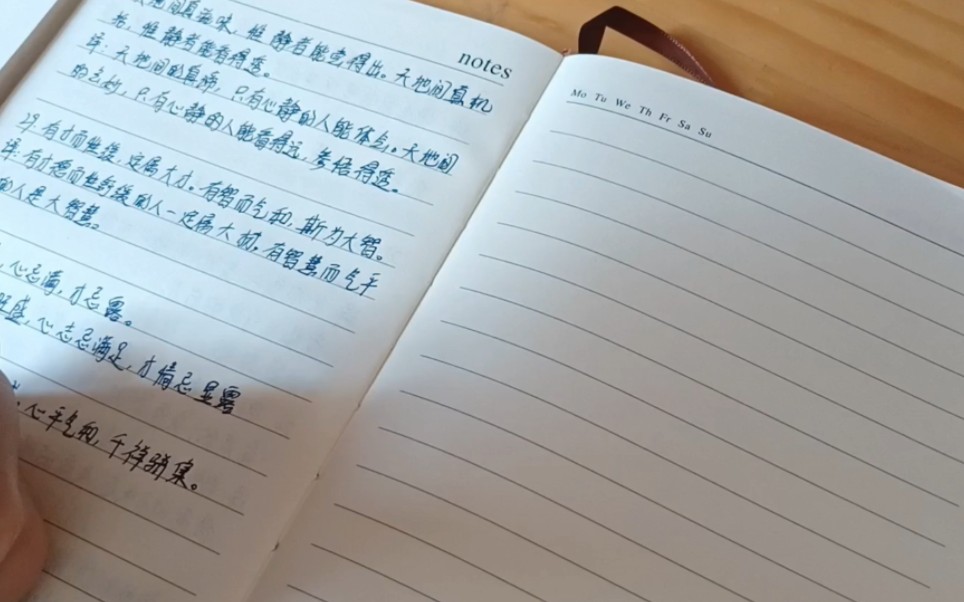 notes
地间真滋味，惟静者能尝得出。天地间真机
括，惟静者能看得透。
译：天地间的真滞，只有心静的人能体会。天地间
的玄机，只有心静的人能看得远，参悟得透。
29.有才而性缓，定属大才。有智而气和，斯为大智。
译：有才想而性舒缓的人一定属大材。有智慧而气平
的人是大智慧。
，心忌满，才忌露。
旺盛，心志忌满足，才情忌显露
，心平气和，千祥骈集。
Mo Tu We Th Fr Sa Su